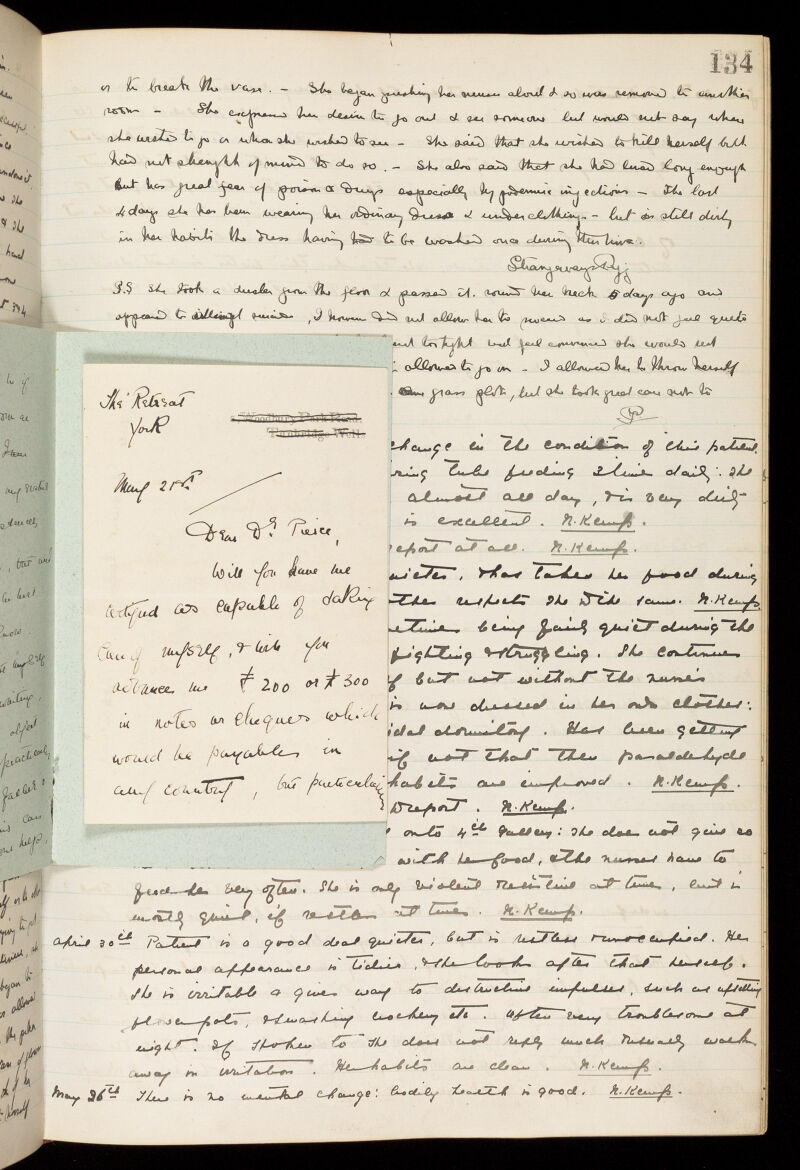 134
or to break the vase. – She began pushing her nurses about & so was removed to another
room – She expressed her desire to go out & see someone but would not say where
she wanted to go or whom she wished to see – She said that she wished to kill herself but
had not strength of mind to do so. – She also said that she had lived long enough
but has great fear of poison & drugs especially hypodermic injections – The last
4 days she has been wearing her ordinary dress & underclothing – but is still dirty
in her habits the dress having had to be washed once during this time.
P.S She took a duster from the floor & passed it round her neck 5 days ago and
appeared to attempt suicide, I however did not allow her to proceed as I did not feel quite
out tonight and feel convinced she would not
allowed to go on – I allowed her to throw herself
grass plot, but she took great care not to
change in the condition of this patient.
ring tube feeding 2 times daily: She
almost all day, & is very dirty
is excellent. N. Kemp.
report at all. N. Kemp.
quieter, & has taken her food during
other respects she is the same. N. Kemp.
etimes being fairly quiet during the
fighting & struggling. She continues
f but not without the nurse's
is now dressed in her own clothes:
idal dormitory. Has been getting
if not that then paraldehyde
habits are improved. N. Kemp.
report. N. Kemp.
onto 4th Gallery: She does not give so
with her food, & the nurses have to
feed her very often. She is only violent & resistive at times, but is
mostly quiet, if restless at times. N. Kemp.
April 30th Patient is a good deal quieter, but is restless & unoccupied. Her
personal appearance is tidier, & she looks after that herself.
She is irritable & gives way to destructive impulses, such as upsetting
flowerpots, & smashing crockery etc. Often very troublesome at
night. If spoken to she does not reply much & usually walks
away in irritation. Her habits are clean. N. Kemp.
May 26th There is no mental change: bodily health is good. N. Kemp.
The Retreat
York
Woodbury Park Road,
Tunbridge Wells.
May 21st
Dear Dr. Pierce,
Will you have me
certified as capable of taking
care of myself, & will you
advance me £200 or £300
in notes or cheques which
would be payable in
any country, but particularly